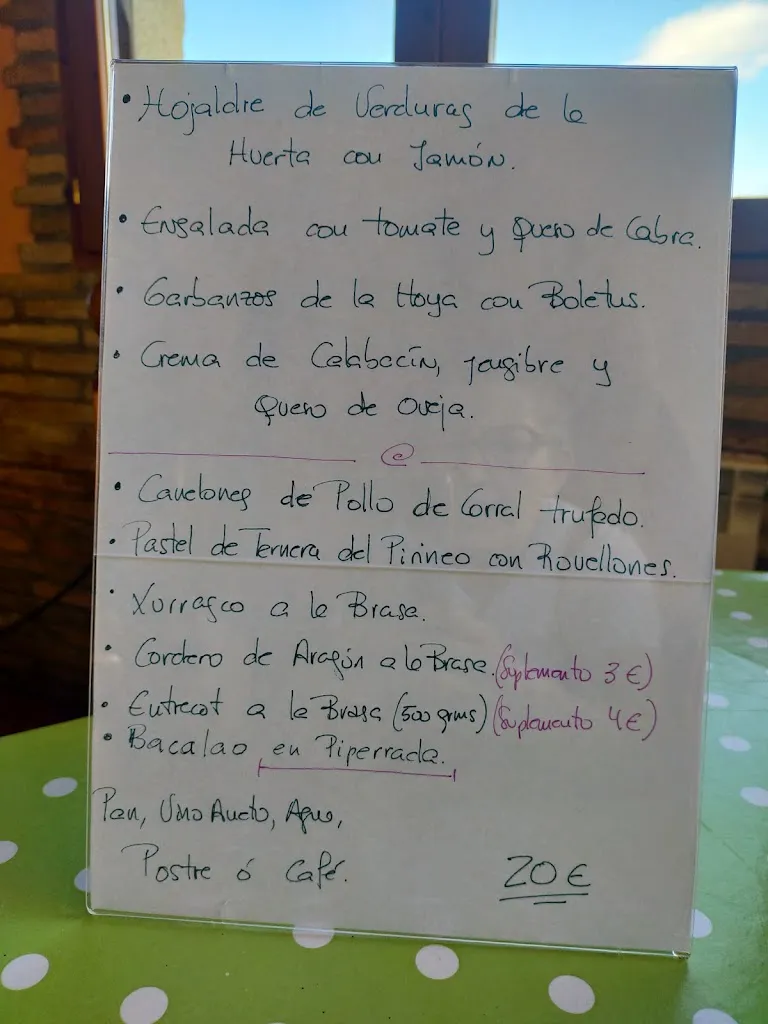 • Hojaldre de Verduras de la
Huerta con Jamón.
• Ensalada con tomate y Queso de Cabra.
• Garbanzos de la Hoya con Boletus.
• Crema de Calabacín, jengibre y
Queso de Oveja.
• Canelones de Pollo de Corral trufado.
• Pastel de Ternera del Pirineo con Rovellones.
• Xurrasco a la Brasa.
• Cordero de Aragón a la Brasa. (Suplemento 3 €)
• Entrecot a la Brasa (500 grms) (Suplemento 4 €)
• Bacalao en Piperrada.
Pan, Vino Aneto, Agua,
Postre ó Café. 20 €